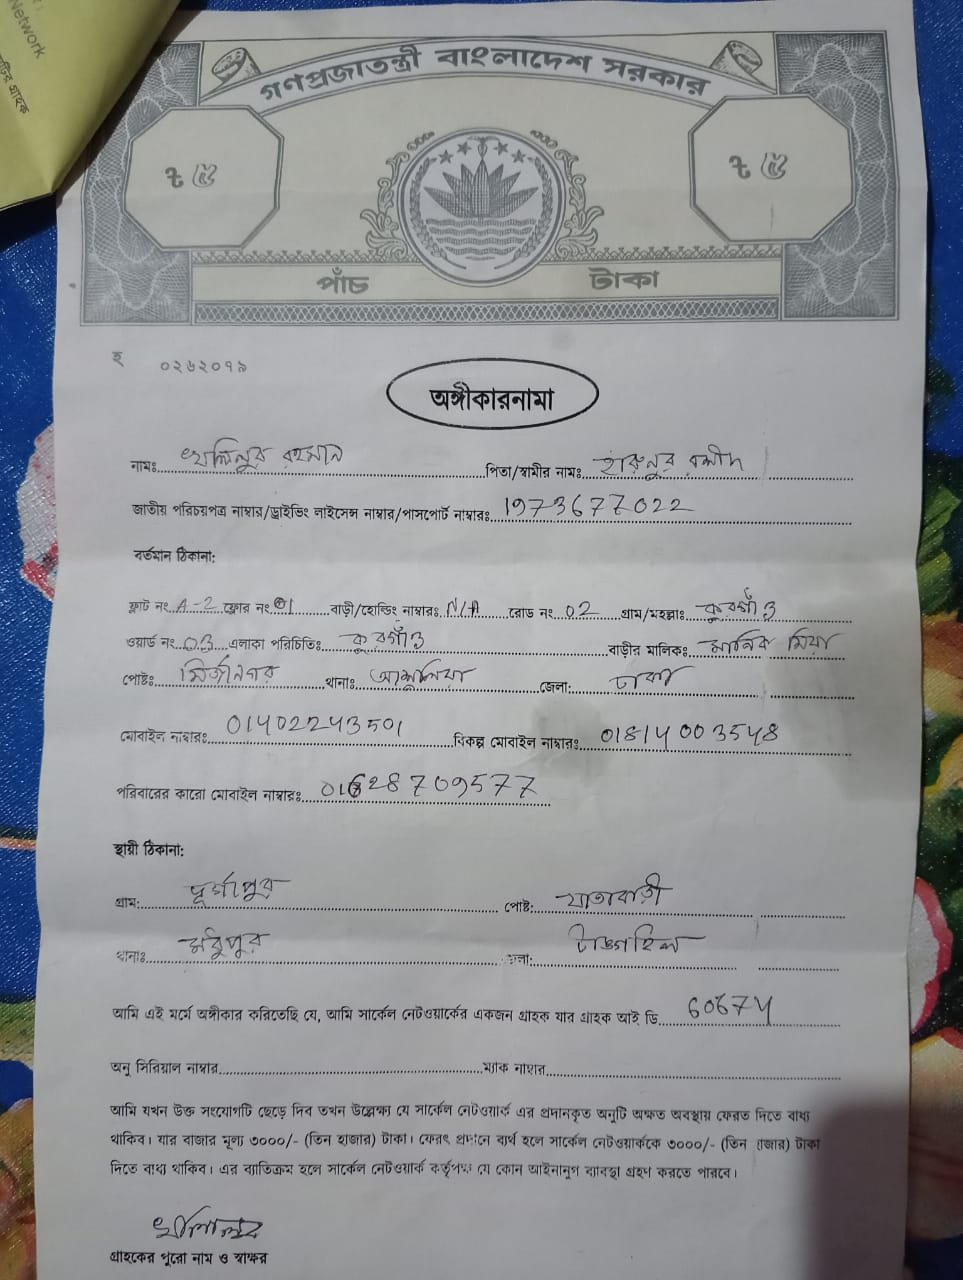 Network
গণপ্রজাতন্ত্রী বাংলাদেশ সরকার
৳ ৫ ৳ ৫
পাঁচ টাকা
হ ০২৬২০৭৯
অঙ্গীকারনামা
নামঃ খলিলুর রহমান পিতা/স্বামীর নামঃ হারুনুর রশীদ
জাতীয় পরিচয়পত্র নাম্বার/ড্রাইভিং লাইসেন্স নাম্বার/পাসপোর্ট নাম্বারঃ 1973677022
বর্তমান ঠিকানা:
ফ্লাট নং A-2 ফ্লোর নং 01 বাড়ী/হোল্ডিং নাম্বারঃ N/A রোড নং 02 গ্রাম/মহল্লাঃ কুরগাঁও
ওয়ার্ড নং 03 এলাকা পরিচিতিঃ কুরগাঁও বাড়ীর মালিকঃ মানিক মিয়া
পোষ্টঃ মির্জানগর থানাঃ আশুলিয়া জেলা: ঢাকা
মোবাইল নাম্বারঃ 01402243501 বিকল্প মোবাইল নাম্বারঃ 01814003548
পরিবারের কারো মোবাইল নাম্বারঃ 01628709577
স্থায়ী ঠিকানা:
গ্রাম: পোষ্ট:
থানাঃ মধুপুর জেলা: টাঙ্গাইল
আমি এই মর্মে অঙ্গীকার করিতেছি যে, আমি সার্কেল নেটওয়ার্কের একজন গ্রাহক যার গ্রাহক আই ডি 60674
অনু সিরিয়াল নাম্বার ম্যাক নাম্বার
আমি যখন উক্ত সংযোগটি ছেড়ে দিব তখন উল্লেক্ষ্য যে সার্কেল নেটওয়ার্ক এর প্রদানকৃত অনুটি অক্ষত অবস্থায় ফেরত দিতে বাধ্য
থাকিব। যার বাজার মূল্য ৩০০০/- (তিন হাজার) টাকা। ফেরৎ প্রদানে ব্যর্থ হলে সার্কেল নেটওয়ার্ককে ৩০০০/- (তিন হাজার) টাকা
দিতে বাধ্য থাকিব। এর ব্যাতিক্রম হলে সার্কেল নেটওয়ার্ক কর্তৃপক্ষ যে কোন আইনানুগ ব্যাবস্থা গ্রহণ করতে পারবে।
গ্রাহকের পুরো নাম ও স্বাক্ষর